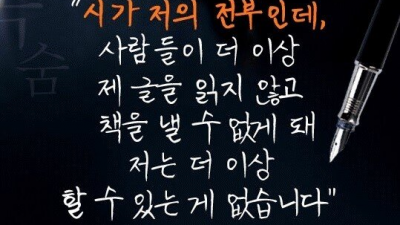 "시가 저의 전부인데,
사람들이 더 이상
제 글을 읽지 않고
책을 낼 수 없게 돼
저는 더 이상
할 수 있는 게 없습니다"